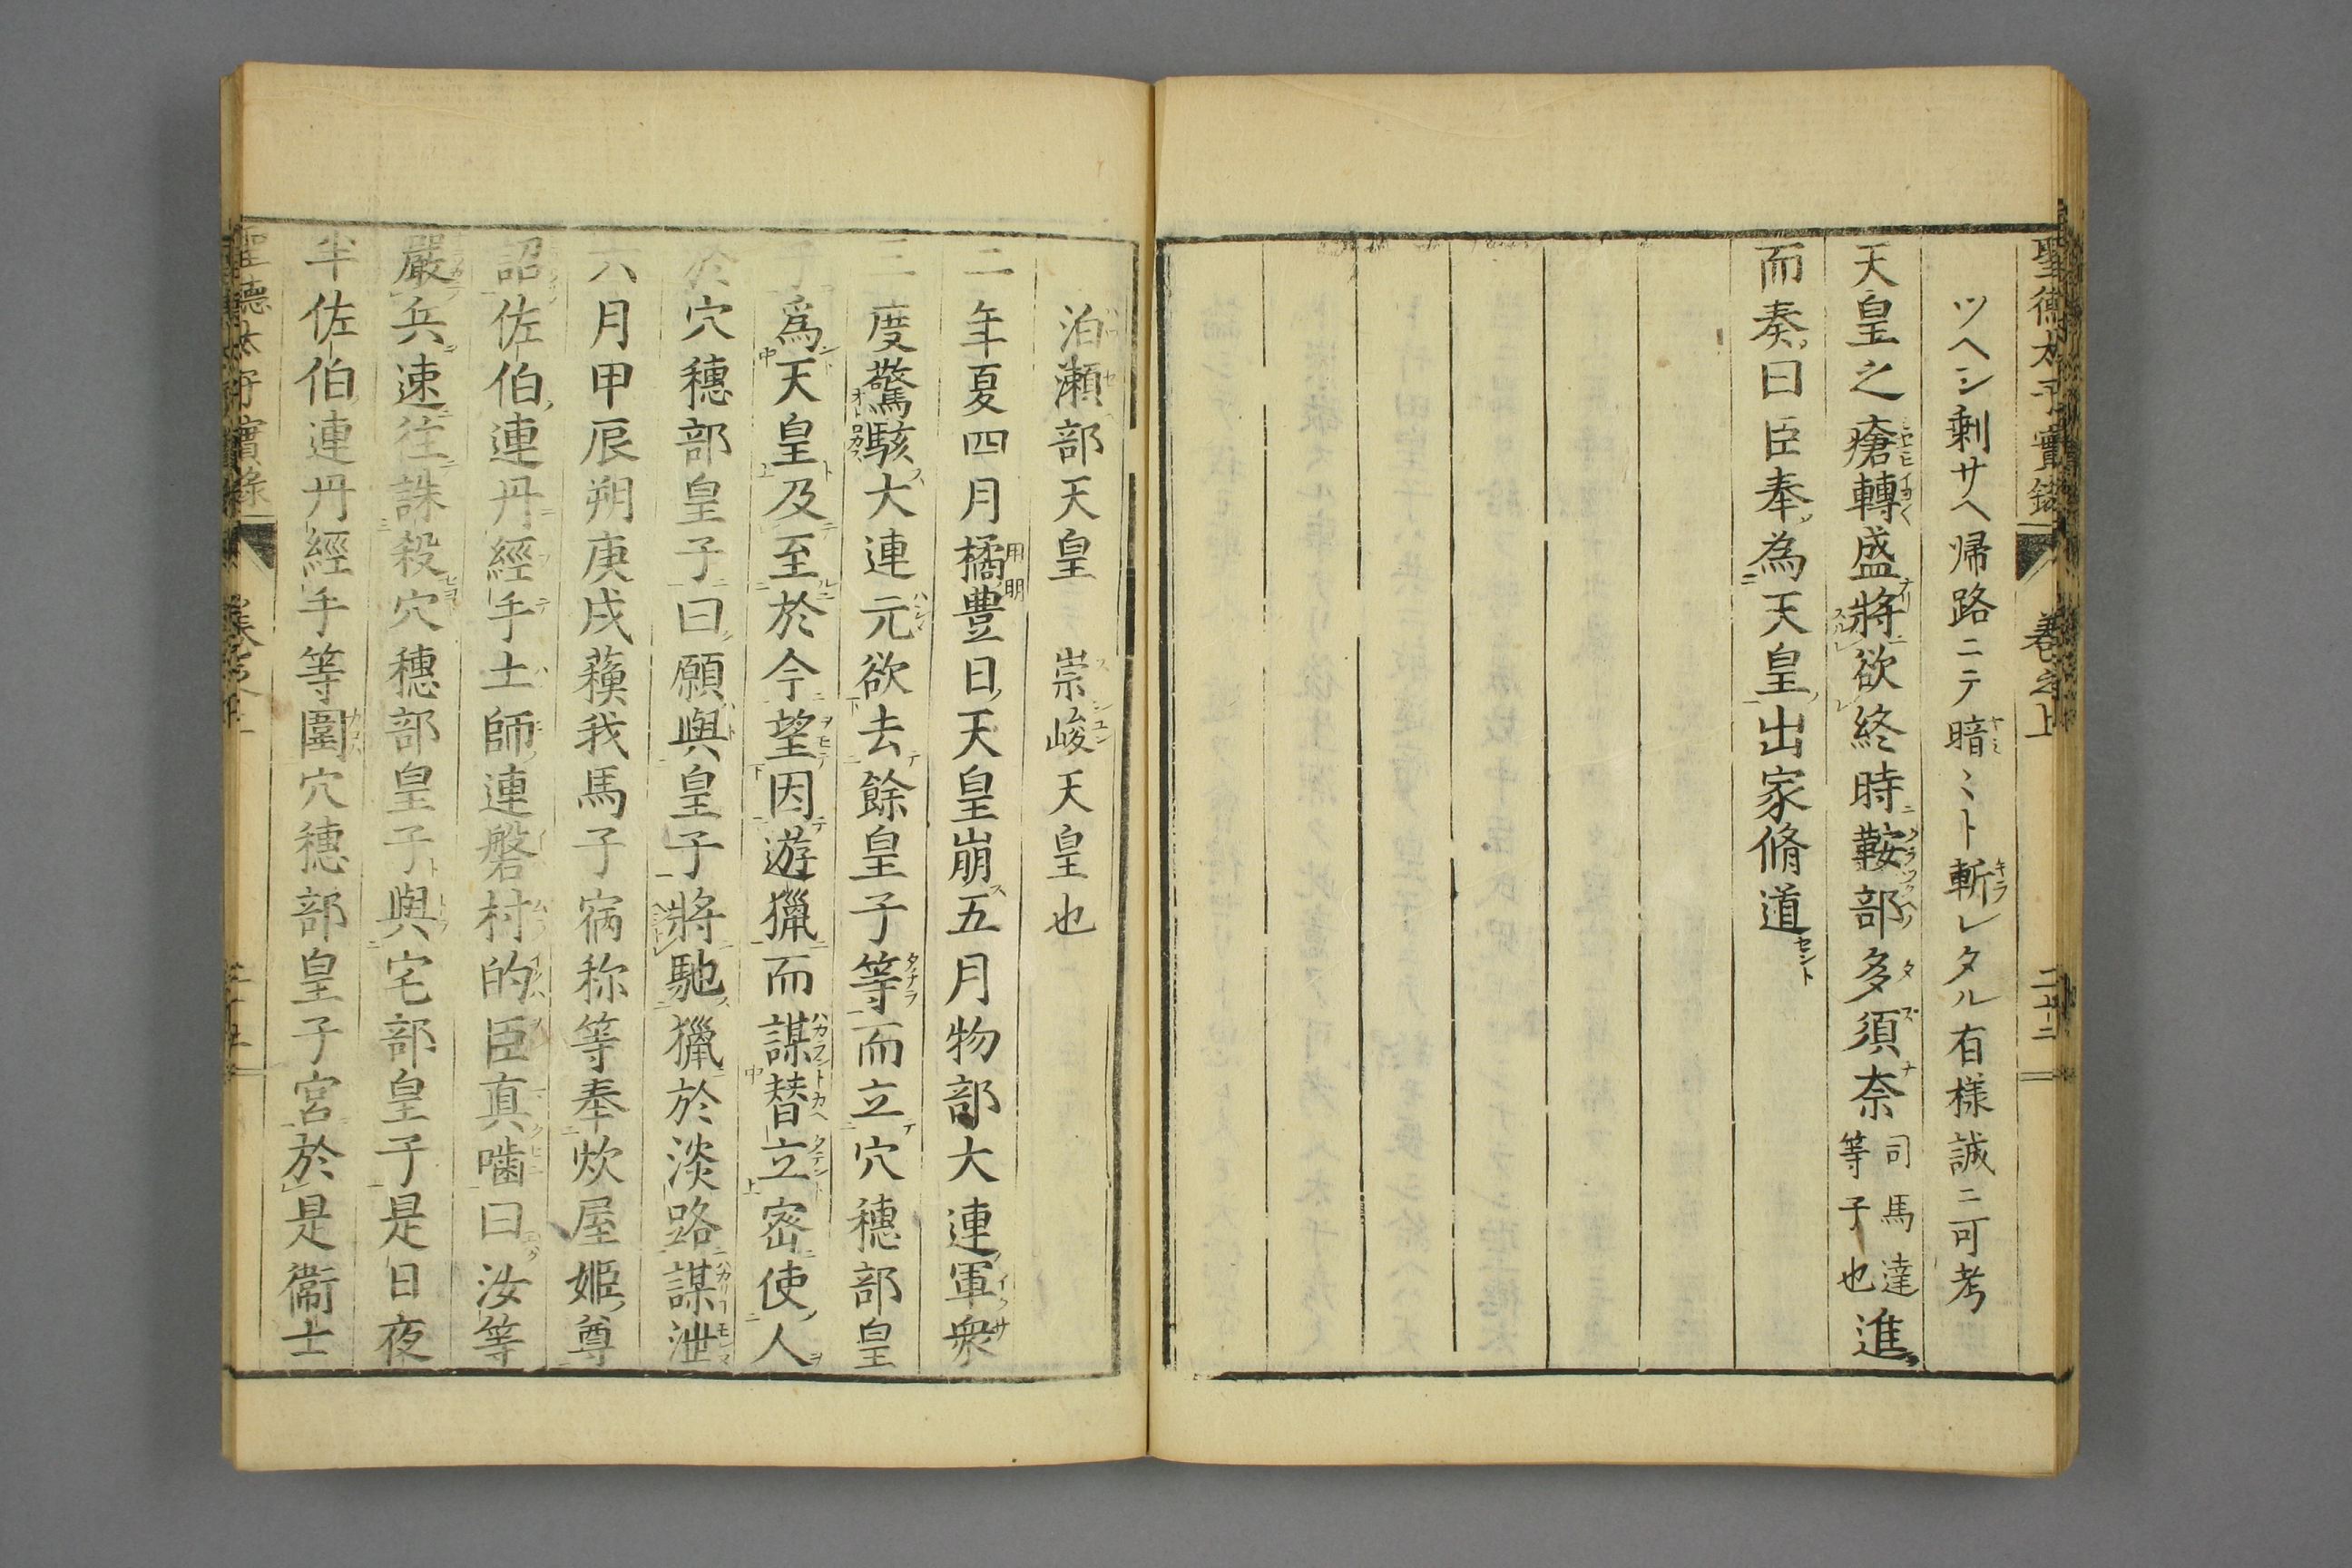 聖德太子實錄 卷之上 二十二
ツヘシ剩サヘ帰路ニテ暗ミト斬レタル有様誠ニ可考
天皇之瘡轉盛將欲終時鞍部多須奈司馬達等子也進
而奏曰臣奉為天皇出家脩道
泊瀬部天皇 崇峻天皇也
二年夏四月橘豊日天皇崩五月物部大連軍衆
三度驚駭大連元欲去餘皇子等而立穴穂部皇
子爲天皇及至於今望因遊獵而謀替立密使人
於穴穂部皇子曰願與皇子將馳獵於淡路謀泄
六月甲辰朔庚戌蘓我馬子宿祢等奉炊屋姫尊
詔佐伯連丹經手土師連磐村的臣真嚙曰汝等
嚴兵速往誅殺穴穂部皇子與宅部皇子是日夜
半佐伯連丹經手等圍穴穂部皇子宮於是衞士
聖德太子實錄